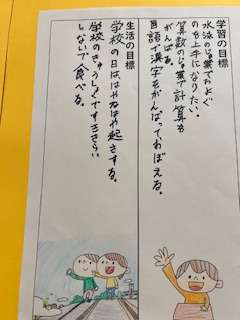 学習の目標
水泳のじゅ業でおよぐ
のも上手になりたい。
算数のじゅ業で計算も
がんばる。
国語で漢字をがんばっておぼえる。
生活の目標
学校の日ははやねはや起きする。
学校のきゅうしょくですききらい
しないで食べる。